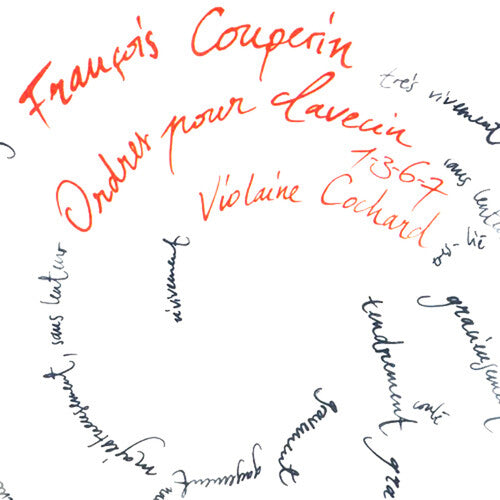 François Couperin
Ordres pour clavecin
1-3-6-7
Violaine Cochard
très vivement
sans lenteur
lié
gracieusement
tendrement
coulé
gra
vivement
sans lenteur
majestueusement
gayement
gaiment